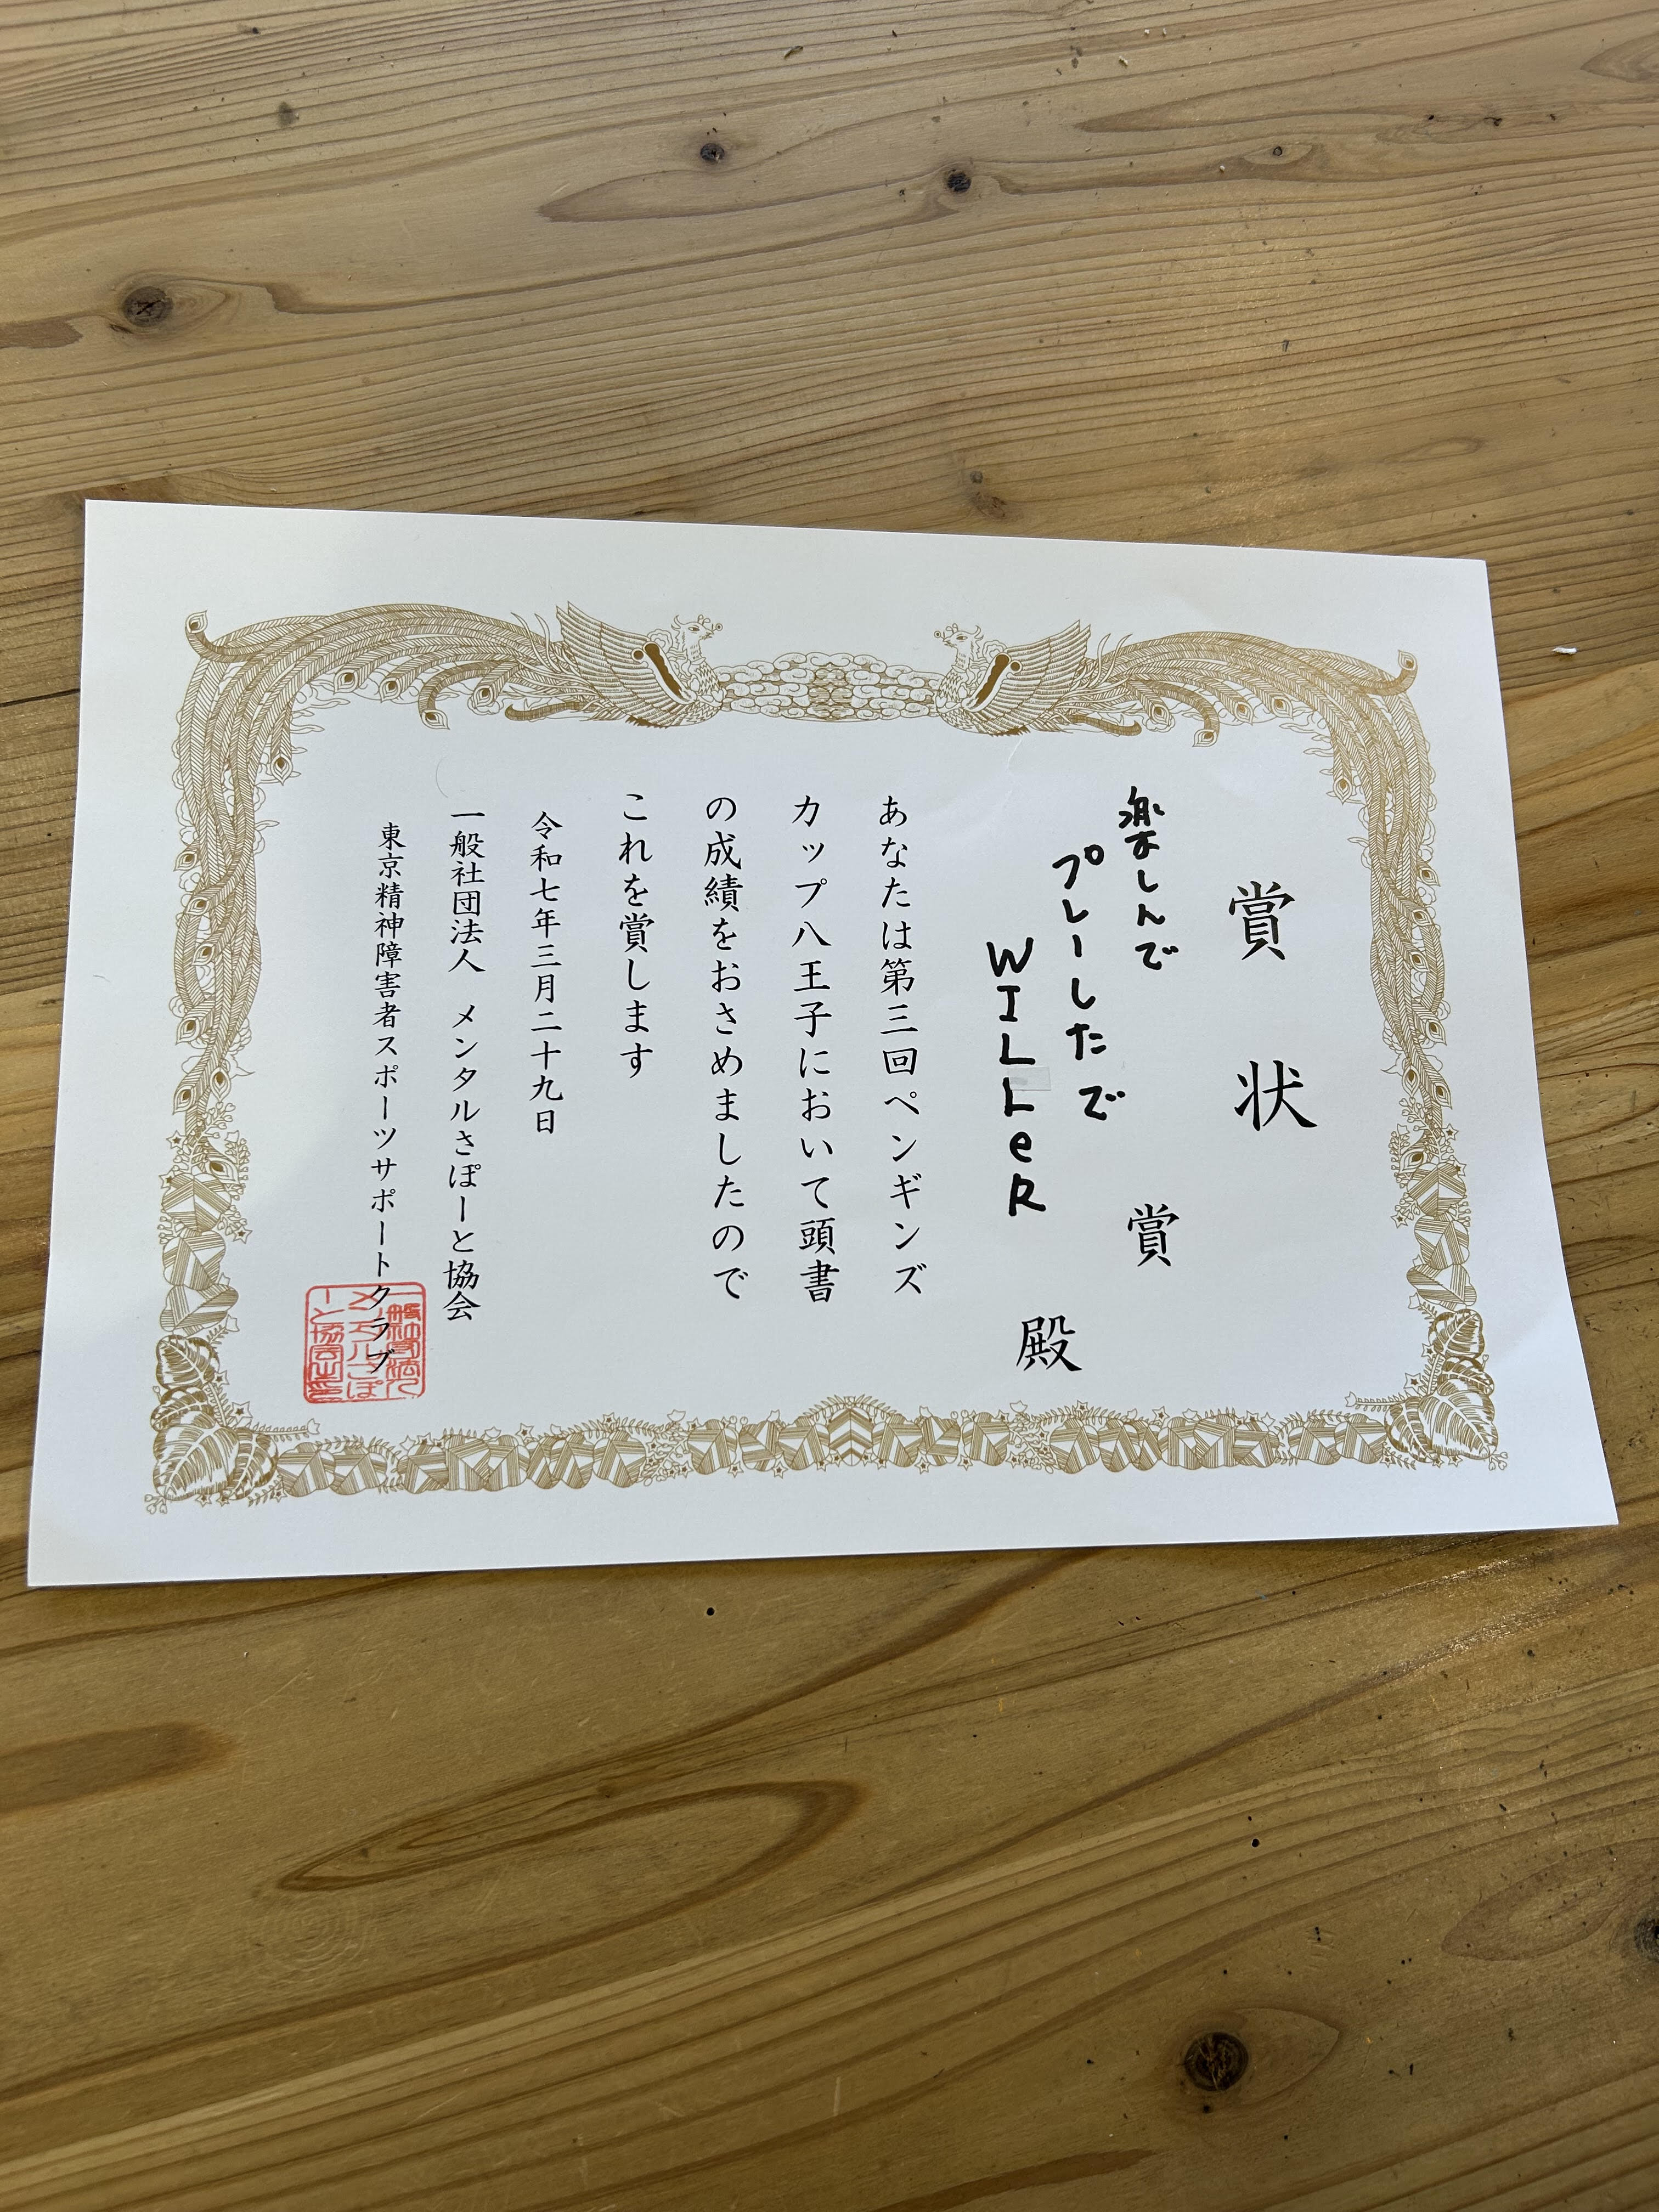 賞状
楽しんで
プレーしたで
賞
WILLeR
殿
あなたは第三回ペンギンズ
カップ八王子において頭書
の成績をおさめましたので
これを賞します
令和七年三月二十九日
一般社団法人 メンタルさぽーと協会
東京精神障害者スポーツサポートクラブ
一般社団法人
メンタルさぽ
ーと協会之印